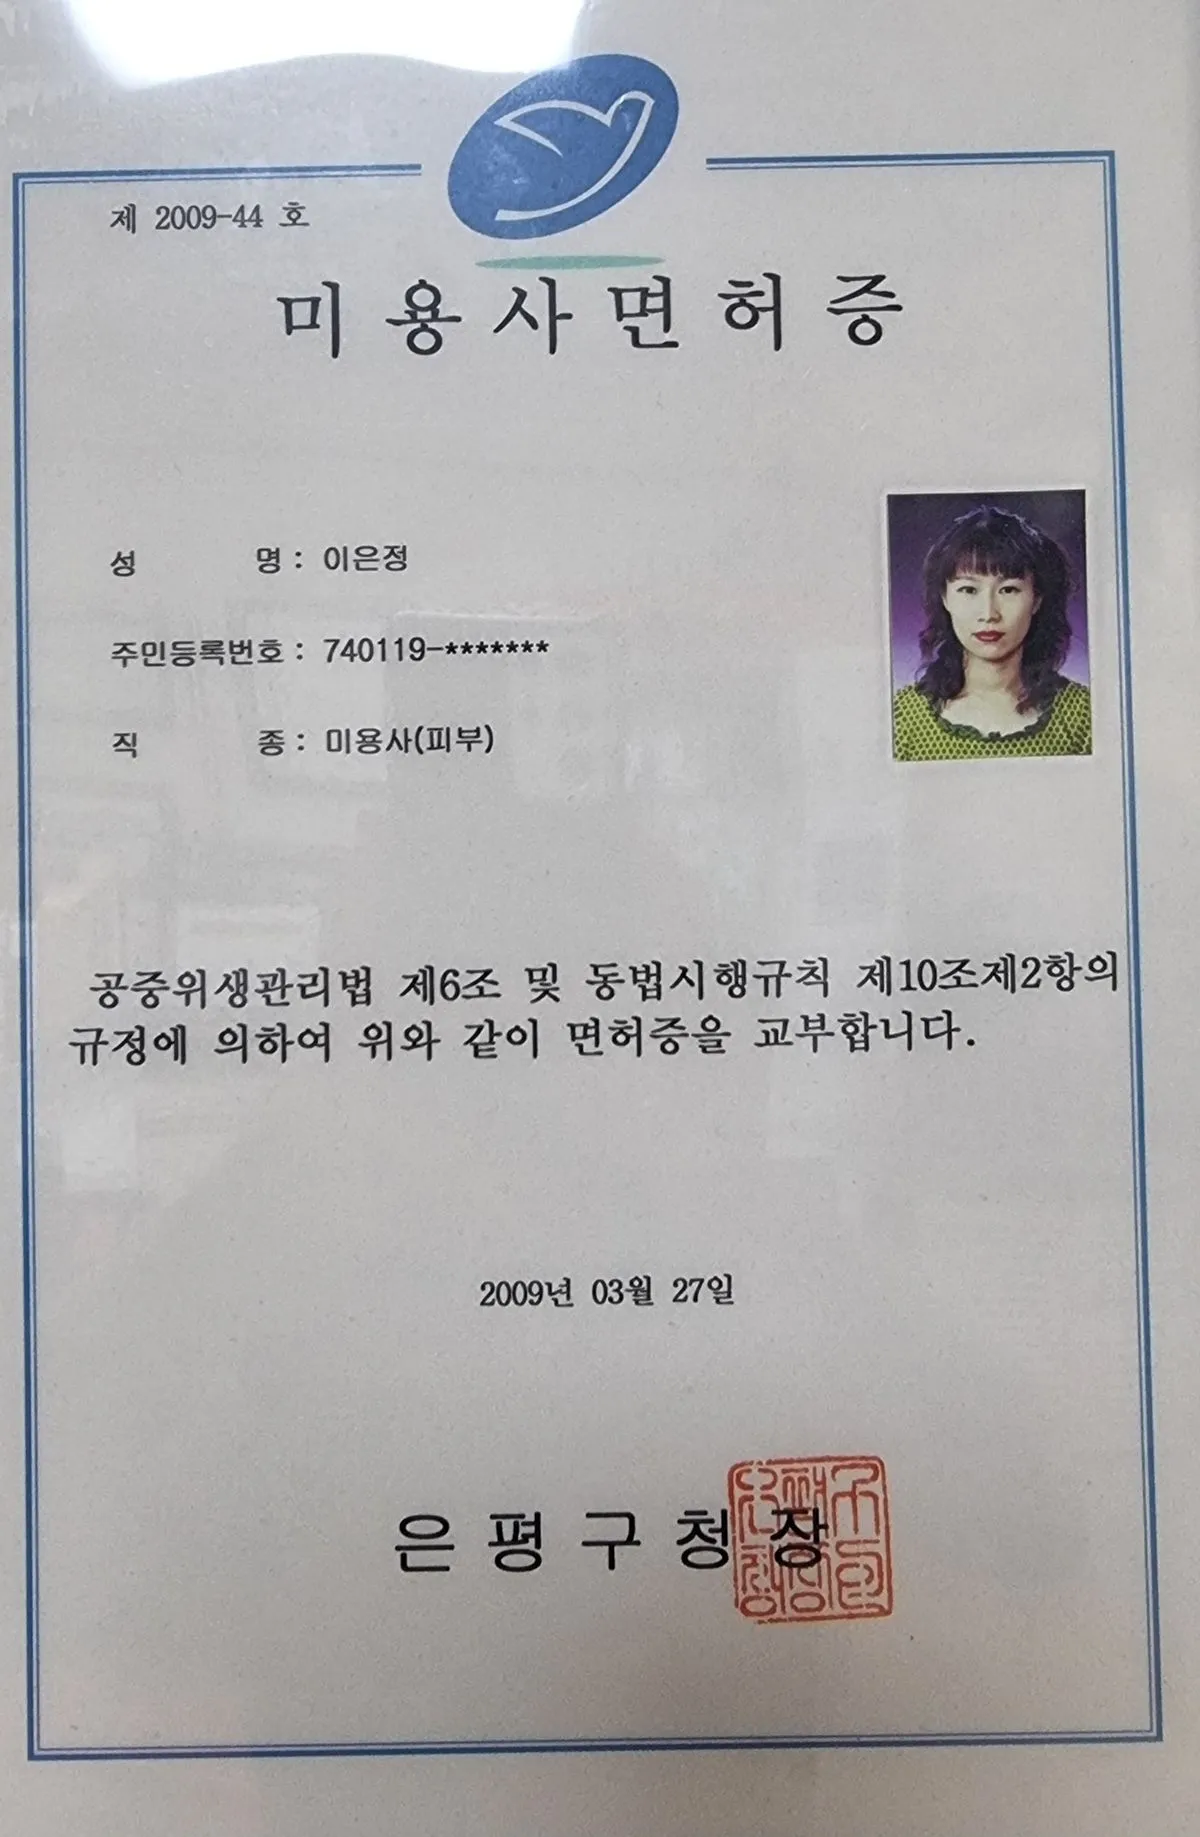 제 2009-44 호
미용사면허증
성 명 : 이은정
주민등록번호 : 740119-*******
직 종 : 미용사(피부)
공중위생관리법 제6조 및 동법시행규칙 제10조제2항의
규정에 의하여 위와 같이 면허증을 교부합니다.
2009년 03월 27일
은평구청장